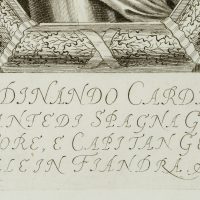 DINANDO CARDI
ANTE DI SPAGNA G
ORE, E CAPITAN GE
LE IN FIANDRA A